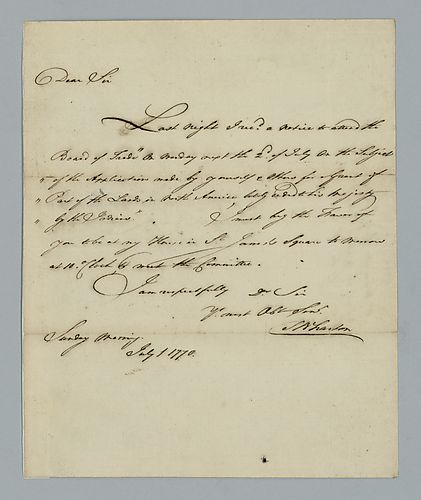 Dear Sir
Last night I rec.d a notice to attend the
Board of Trade "On Monday next the 2.d of July on the Subject
" of the Application made by yourself & others for a Grant of
" Part of the Lands in North America lately ceded to his Majesty
" by the Indians" I must beg the Favor of
you to be at my House in St. James's Square to Morrow
at 10 o'Clock to meet the Committee.
I am respectfully Dr. Sir
Yr. most Obt. Servt.
S Wharton
Sunday Morning
July 1 1770.